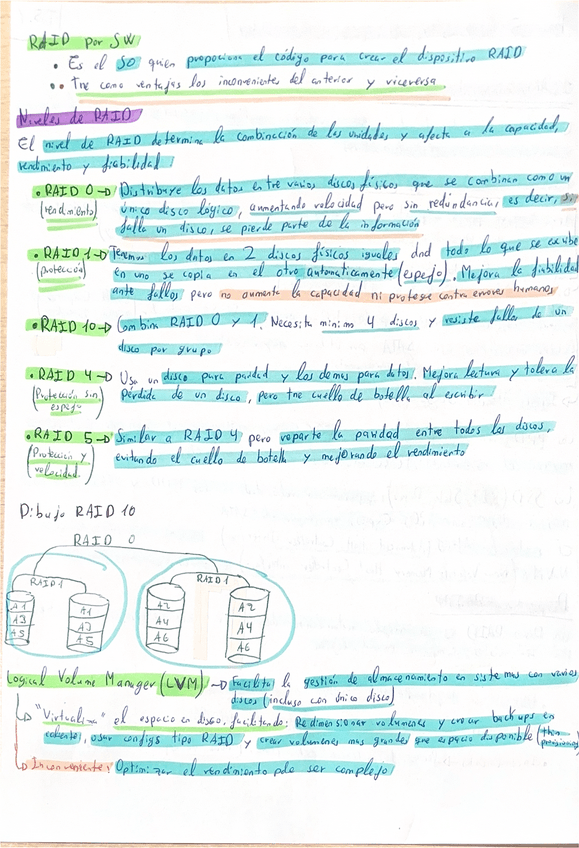 RAID por SW
• Es el SO quien proporciona el código para crear el dispositivo RAID
•• Tne como ventajas los inconvenientes del anterior y viceversa
Niveles de RAID
El nivel de RAID determina la combinación de las unidades y afecta a la capacidad,
rendimiento y fiabilidad
• RAID 0 → Distribuye los datos entre varios discos físicos que se combinan como un
(rendimiento) único disco lógico, aumentando velocidad pero sin redundancia, es decir, si
falla un disco, se pierde parte de la información
• RAID 1 → Tenemos los datos en 2 discos físicos iguales dnd todo lo que se escribe
(protección) en uno se copia en el otro automáticamente (espejo). Mejora la fiabilidad
ante fallos, pero no aumenta la capacidad ni protege contra errores humanos
• RAID 10 → Combina RAID 0 y 1. Necesita mínimo 4 discos y resiste fallos de un
disco por grupo
• RAID 4 → Usa un disco para paridad y los demas para datos. Mejora lectura y tolera la
(Protección sin espejo) Pérdida de un disco, pero tne cuello de botella al escribir
• RAID 5 → Similar a RAID 4 pero reparte la paridad entre todos los discos,
(Protección y velocidad) evitando el cuello de botella y mejorando el rendimiento
Dibujo RAID 10
RAID 0
RAID 1 RAID 1
A1 A1 A2 A2
A3 A3 A4 A4
A5 A5 A6 A6
Logical Volume Manager (LVM) → Facilita la gestión de almacenamiento en sistemas con varios
discos (incluso con único disco)
↳ "Virtualiza" el espacio en disco, facilitando: Redimensionar volumenes y crear backups en
caliente, usar configs tipo RAID y crear volumenes mas grandes que espacio disponible (then
provisioning)
↳ Inconveniente: Optimizar el rendimiento pde ser complejo